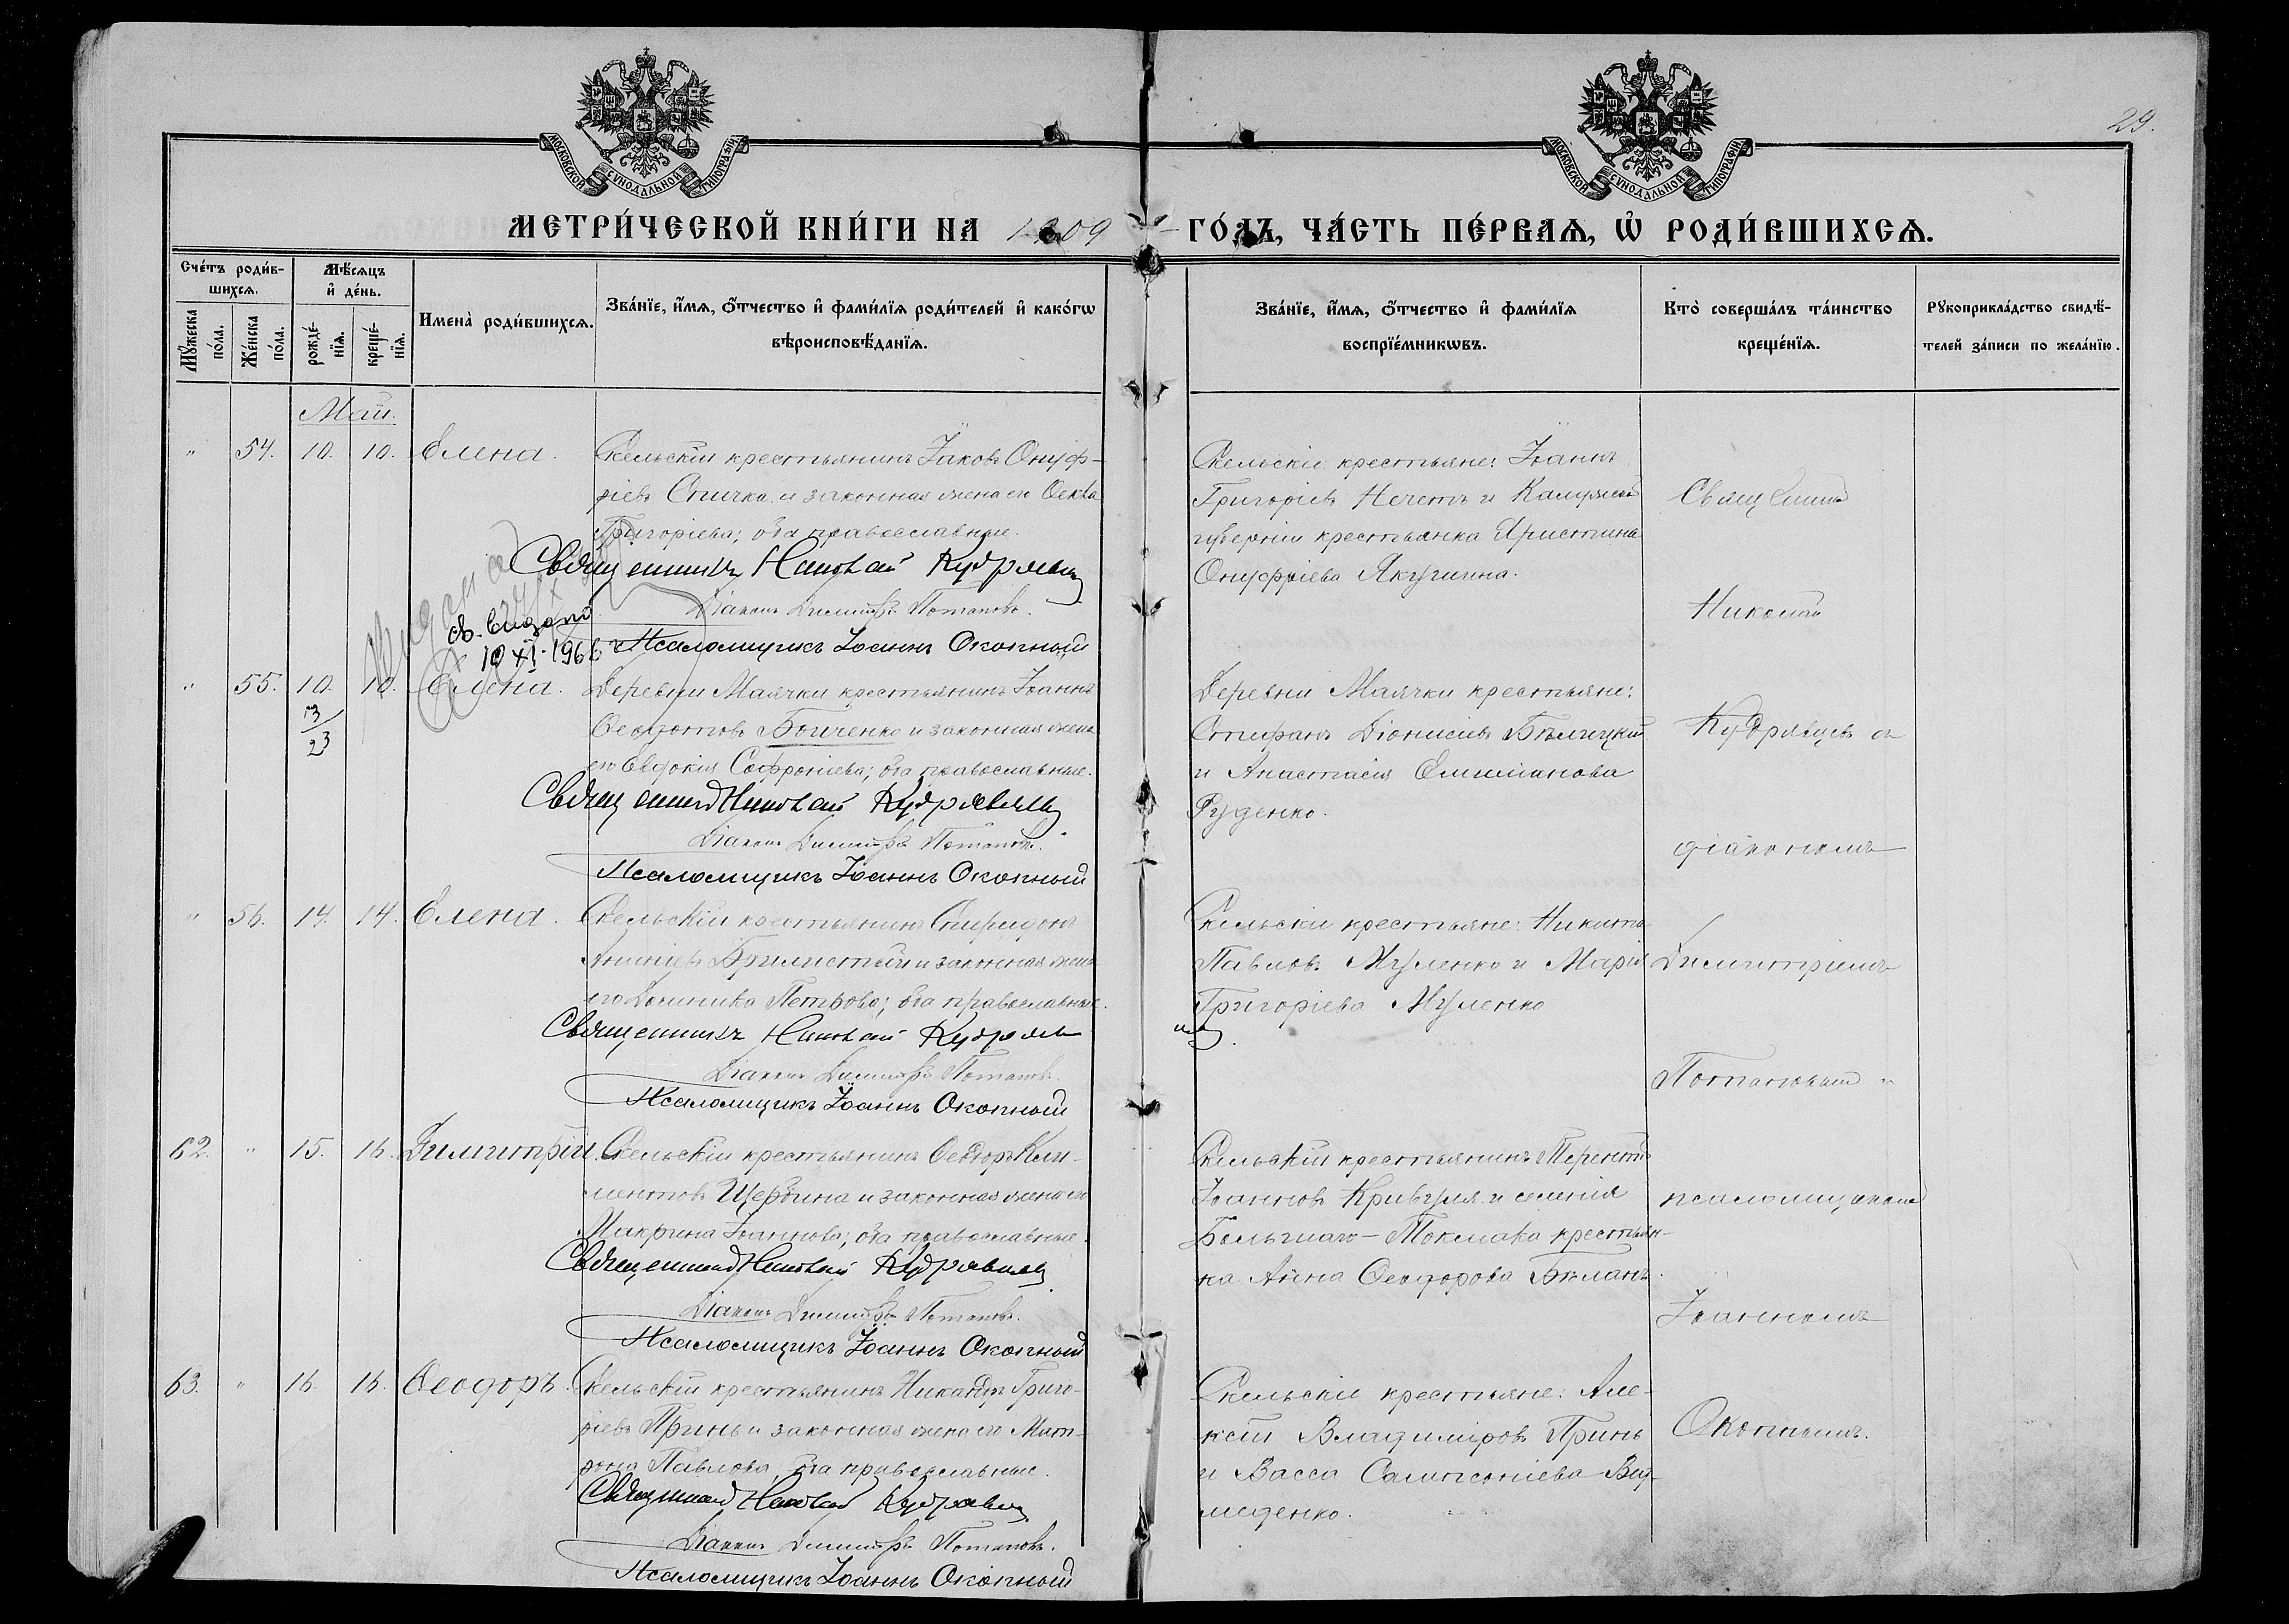 29.
МОСКОВСКОЙ СѴНОДАЛЬНОЙ ТИПОГРАФІИ
МОСКОВСКОЙ СѴНОДАЛЬНОЙ ТИПОГРАФІИ
МЕТРИ́ЧЕСКОЙ КНИ́ГИ НА 1909
ГО́ДЪ, ЧА́СТЬ ПЕ́РВАѦ, Ѡ҆ РОДИ́ВШИХСѦ.
Сче́тъ роди́в-
шихсѧ.
Мѣ́сѧцъ
и҆ де́нь.
Мꙋ́жеска по́ла.
Же́нска по́ла.
рожде́-
нїѧ.
креще́-
нїѧ.
Имена̀ роди́вшихсѧ.
Зва́нїе, и҆́мѧ, ѻ҆́тчество и҆ фами́лїѧ роди́телей и҆ како́гѡ
вѣроисповѣ́данїѧ.
Зва́нїе, и҆́мѧ, ѻ҆́тчество и҆ фами́лїѧ
воспрїе́мникѡвъ.
Кто̀ соверша́лъ та́инство
креще́нїѧ.
Рꙋкоприкла́дство свидѣ́-
телей за́писи по жела́нїю.
Май.
" 54. 10. 10. Елена.
Скельскій крестьянинъ Іаковъ Онуф-
ріевъ Спичка и законная жена его Ѳекла
Григоріева; оба православные.
Священникъ Николай Кудрявцевъ
Діаконъ Димитрій Потаповъ.
Псаломщикъ Іоаннъ Окопный
Скельскіе крестьяне: Іоаннъ
Григоріевъ Нечетъ и
губерніи крестьянка Христина
Онуфріева Якушина.
св. видано
10 XI. 1966 г
" 55. 10. 10. Елена.
13/23
Деревни Маячки крестьянинъ Іоаннъ
Ѳеодотовъ Бойченко и законная жена
его Евдокія Софроніева; оба православные.
Священникъ Николай Кудрявцевъ
Діаконъ Димитрій Потаповъ.
Псаломщикъ Іоаннъ Окопный
Деревни Маячки крестьяне:
Стефанъ Діонисіевъ Бѣлицкій
и Анастасія Емиліанова
Руденко.
" 56. 14. 14. Елена.
Скельскій крестьянинъ Спиридонъ
Ананіевъ и законная жена
его Домника Петрова; оба православные.
Священникъ Николай Кудрявцевъ
Діаконъ Димитрій Потаповъ.
Псаломщикъ Іоаннъ Окопный
Скельскіе крестьяне: Никита
Павловъ Муленко и Марія
Григоріева Муленко
62. " 15. 16. Димитрій.
Скельскій крестьянинъ Ѳеодоръ Кли-
ментовъ Щербина и законная жена его
Макрина Іоаннова; оба православные.
Священникъ Николай Кудрявцевъ
Діаконъ Димитрій Потаповъ.
Псаломщикъ Іоаннъ Окопный
Скельскій крестьянинъ Терентій
Іоанновъ Кривуля и селенія
Большаго-Токмака крестьян-
ка Анна Ѳеодорова Бѣланъ.
63. " 16. 16. Ѳеодоръ.
Скельскій крестьянинъ Никандръ Григо-
ріевъ Принь и законная жена его Мит-
рона Павлова, оба православные.
Священникъ Николай Кудрявцевъ
Діаконъ Димитрій Потаповъ.
Псаломщикъ Іоаннъ Окопный
Скельскіе крестьяне: Але-
ксѣй Владиміровъ Принь
и Васса Сампсоніева Вед-
меденко.
Священникъ
Николай
Кудрявцевъ съ
діакономъ
Димитріемъ
Потаповымъ и
псаломщикомъ
Іоанномъ
Окопнымъ.